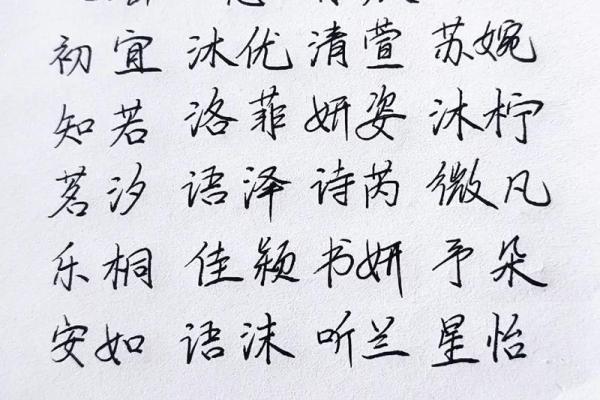 初宜 沐优 清萱 苏婉
知若 洛菲 妍姿 沐柠
茗汐 语泽 诗芮 微凡
乐桐 佳颖 书妍 予朵
安如 语沫 听兰 星怡